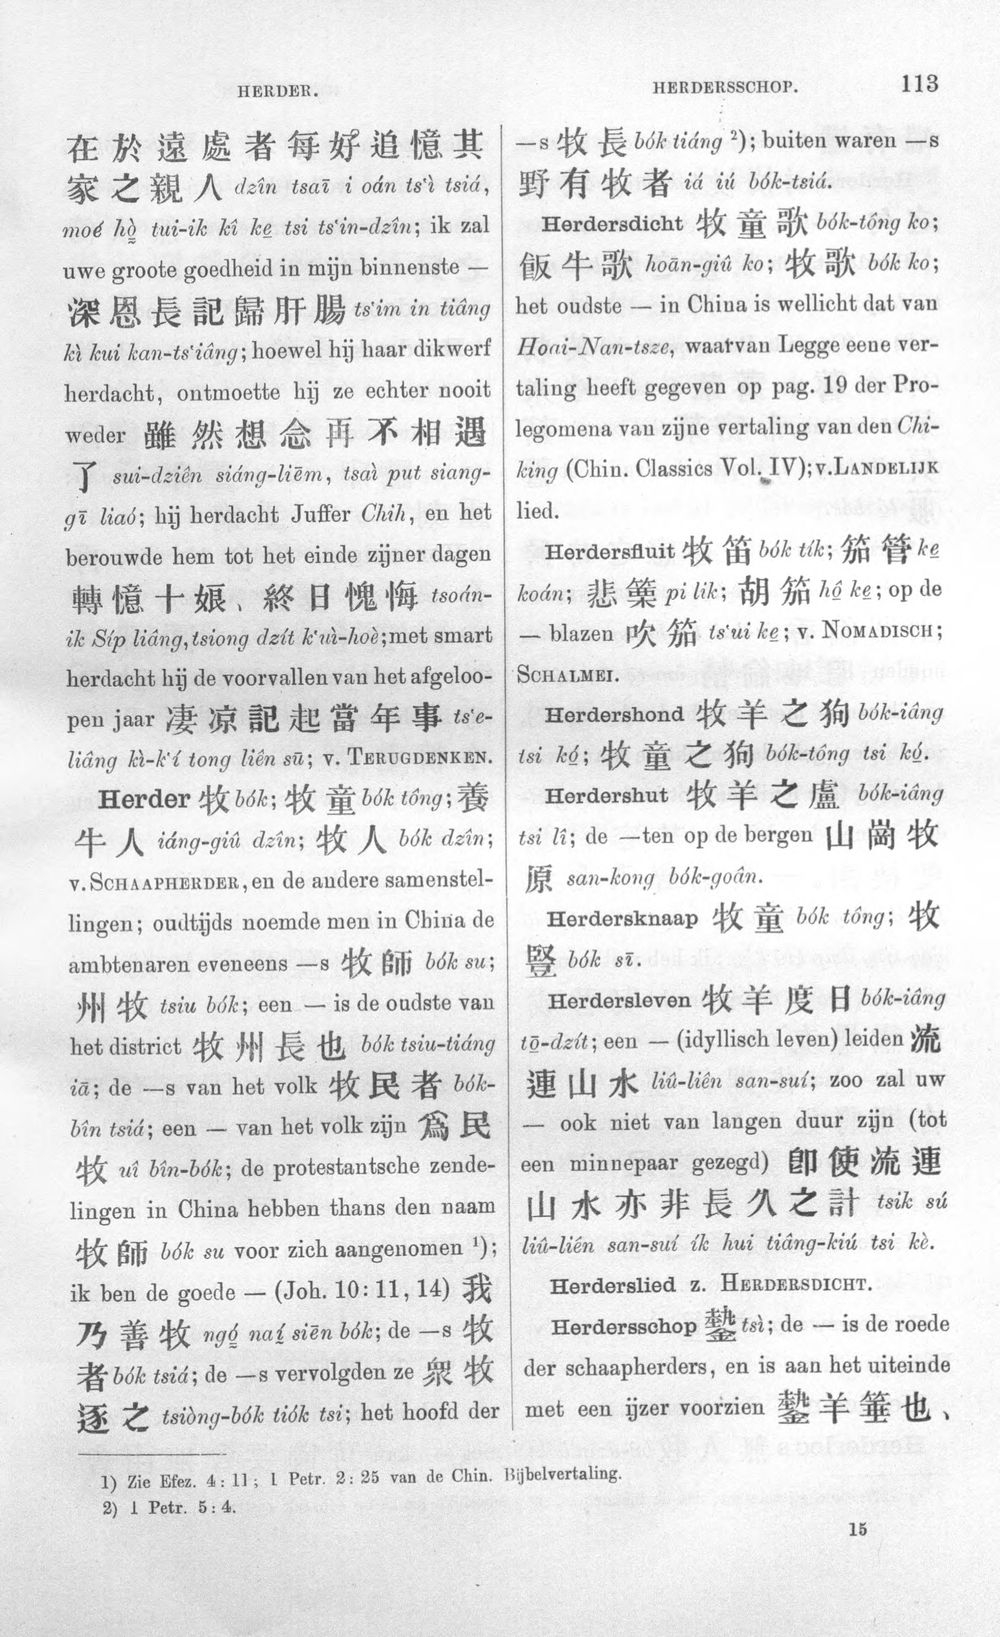 HERDER.
HERDERSSCHOP. 113
在於遠處者每好追憶其
家之親人 dzîn tsaī i oán ts'ì tsiá,
moé hò̤ tui-ik kî ke̱ tsi ts'in-dzîn; ik zal
uwe groote goedheid in mijn binnenste —
深恩長記歸肝腸 ts'im in tiâng
kì kui kan-ts'iâng; hoewel hij haar dikwerf
herdacht, ontmoette hij ze echter nooit
weder 雖然想念再不相遇
了 sui-dziên siáng-liēm, tsaì put siang-
gī liaó; hij herdacht Juffer Chih, en het
berouwde hem tot het einde zijner dagen
轉憶十娘、終日愧悔 tsoán-
ik Síp liâng, tsiong dzít k'uì-hoè; met smart
herdacht hij de voorvallen van het afgeloo-
pen jaar 凄凉記起當年事 ts'e-
liâng kì-k'í tong liên sū; v. TERUGDENKEN.
Herder 牧 bók; 牧童 bók tông; 養
牛人 iáng-giû dzîn; 牧人 bók dzîn;
v. SCHAAPHERDER, en de andere samenstel-
lingen; oudtijds noemde men in China de
ambtenaren eveneens —s 牧師 bók su;
州牧 tsiu bók; een — is de oudste van
het district 牧州長也 bók tsiu-tiáng
iā; de —s van het volk 牧民者 bók-
bîn tsiá; een — van het volk zijn 爲民
牧 uî bîn-bók; de protestantsche zende-
lingen in China hebben thans den naam
牧師 bók su voor zich aangenomen ¹);
ik ben de goede — (Joh. 10: 11, 14) 我
乃善牧 ngó̤ naí̤ siēn bók; de —s 牧
者 bók tsiá; de —s vervolgden ze 衆牧
逐之 tsiòng-bók tiók tsi; het hoofd der
—s 牧長 bók tiáng ²); buiten waren —s
野有牧者 iá iú bók-tsiá.
Herdersdicht 牧童歌 bók-tông ko;
飯牛歌 hoān-giû ko; 牧歌 bók ko;
het oudste — in China is wellicht dat van
Hoai-Nan-tsze, waarvan Legge eene ver-
taling heeft gegeven op pag. 19 der Pro-
legomena van zijne vertaling van den Chi-
king (Chin. Classics Vol. IV); v. LANDELIJK
lied.
Herdersfluit 牧笛 bók tík; 笳管 ke̱
koán; 悲篥 pi lik; 胡笳 hô ke̱; op de
— blazen 吹笳 ts'ui ke̱; v. NOMADISCH;
SCHALMEI.
Herdershond 牧羊之狗 bók-iâng
tsi kó̤; 牧童之狗 bók-tông tsi kó̤.
Herdershut 牧羊之廬 bók-iâng
tsi lî; de —ten op de bergen 山崗牧
原 san-kong bók-goân.
Herdersknaap 牧童 bók tông; 牧
豎 bók sī.
Herdersleven 牧羊度日 bók-iâng
tō̤-dzít; een — (idyllisch leven) leiden 流
連山水 liû-liên san-suí; zoo zal uw
— ook niet van langen duur zijn (tot
een minnepaar gezegd) 卽使流連
山水亦非長久之計 tsik sú
liû-liên san-suí ík hui tiâng-kiú tsi kè.
Herderslied z. HERDERSDICHT.
Herdersschop tsì; de — is de roede
der schaapherders, en is aan het uiteinde
met een ijzer voorzien 羊箠也、
1) Zie Efez. 4: 11; 1 Petr. 2: 25 van de Chin. Bijbelvertaling.
2) 1 Petr. 5: 4.
15